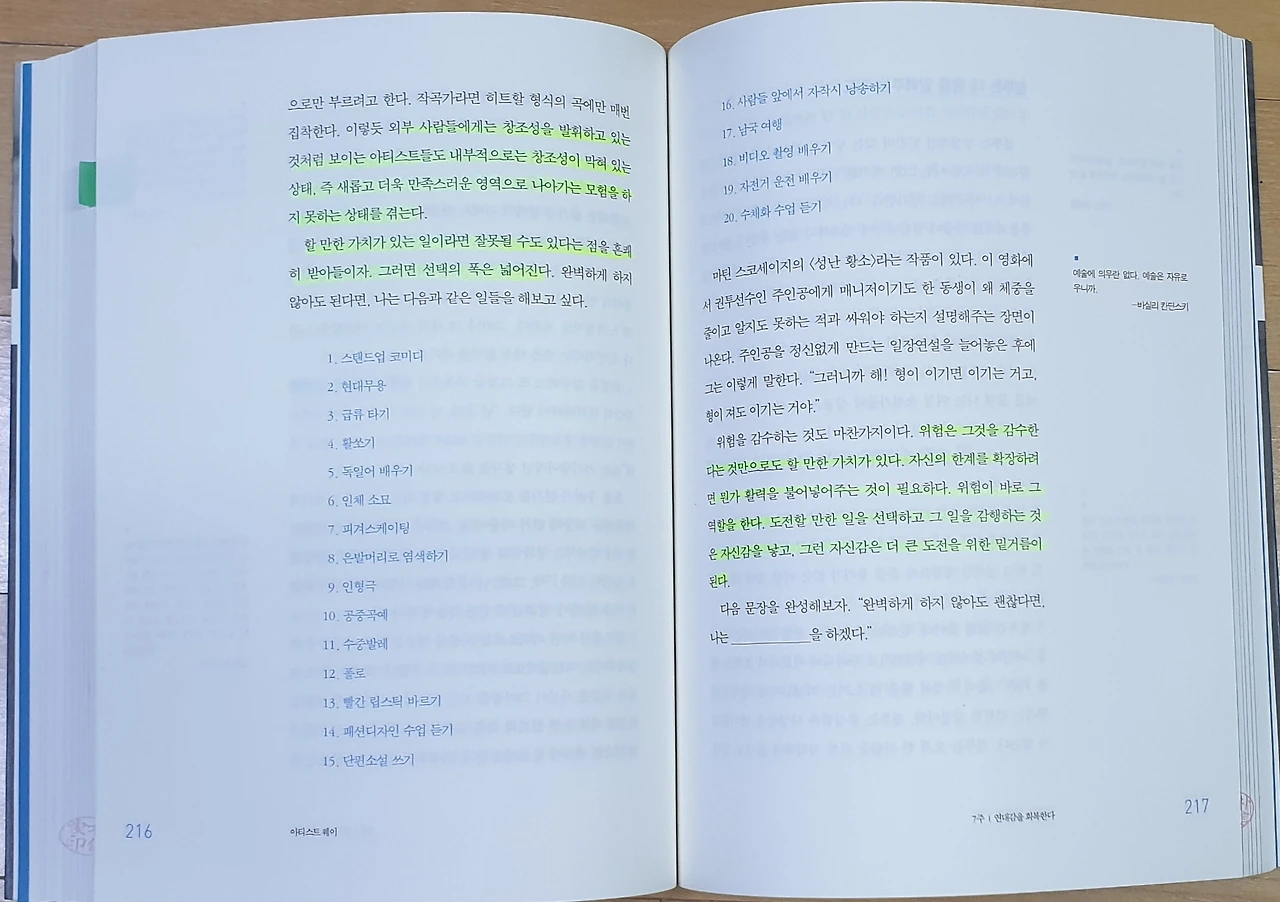 으로만 부르려고 한다. 작곡가라면 히트할 형식의 곡에만 매번
집착한다. 이렇듯 외부 사람들에게는 창조성을 발휘하고 있는
것처럼 보이는 아티스트들도 내부적으로는 창조성이 막혀 있는
상태, 즉 새롭고 더욱 만족스러운 영역으로 나아가는 모험을 하
지 못하는 상태를 겪는다.
할 만한 가치가 있는 일이라면 잘못될 수도 있다는 점을 흔쾌
히 받아들이자. 그러면 선택의 폭은 넓어진다. 완벽하게 하지
않아도 된다면, 나는 다음과 같은 일들을 해보고 싶다.
1. 스탠드업 코미디
2. 현대무용
3. 급류 타기
4. 활쏘기
5. 독일어 배우기
6. 인체 소묘
7. 피겨스케이팅
8. 은발머리로 염색하기
9. 인형극
10. 공중곡예
11. 수중발레
12. 폴로
13. 빨간 립스틱 바르기
14. 패션디자인 수업 듣기
15. 단편소설 쓰기
216
아티스트 웨이
16. 사람들 앞에서 자작시 낭송하기
17. 남국 여행
18. 비디오 촬영 배우기
19. 자전거 운전 배우기
20. 수채화 수업 듣기
마틴 스코세이지의 〈성난 황소〉라는 작품이 있다. 이 영화에
서 권투선수인 주인공에게 매니저이기도 한 동생이 왜 체중을
줄이고 알지도 못하는 적과 싸워야 하는지 설명해주는 장면이
나온다. 주인공을 정신없게 만드는 일장연설을 늘어놓은 후에
그는 이렇게 말한다. “그러니까 해! 형이 이기면 이기는 거고,
형이 져도 이기는 거야.”
위험을 감수하는 것도 마찬가지이다. 위험은 그것을 감수한
다는 것만으로도 할 만한 가치가 있다. 자신의 한계를 확장하려
면 뭔가 활력을 불어넣어주는 것이 필요하다. 위험이 바로 그
역할을 한다. 도전할 만한 일을 선택하고 그 일을 감행하는 것
은 자신감을 낳고, 그런 자신감은 더 큰 도전을 위한 밑거름이
된다.
다음 문장을 완성해보자. “완벽하게 하지 않아도 괜찮다면,
나는 __________을 하겠다.”
예술에 의무란 없다. 예술은 자유로
우니까.
–바실리 칸딘스키
7주 | 연대감을 회복한다
217